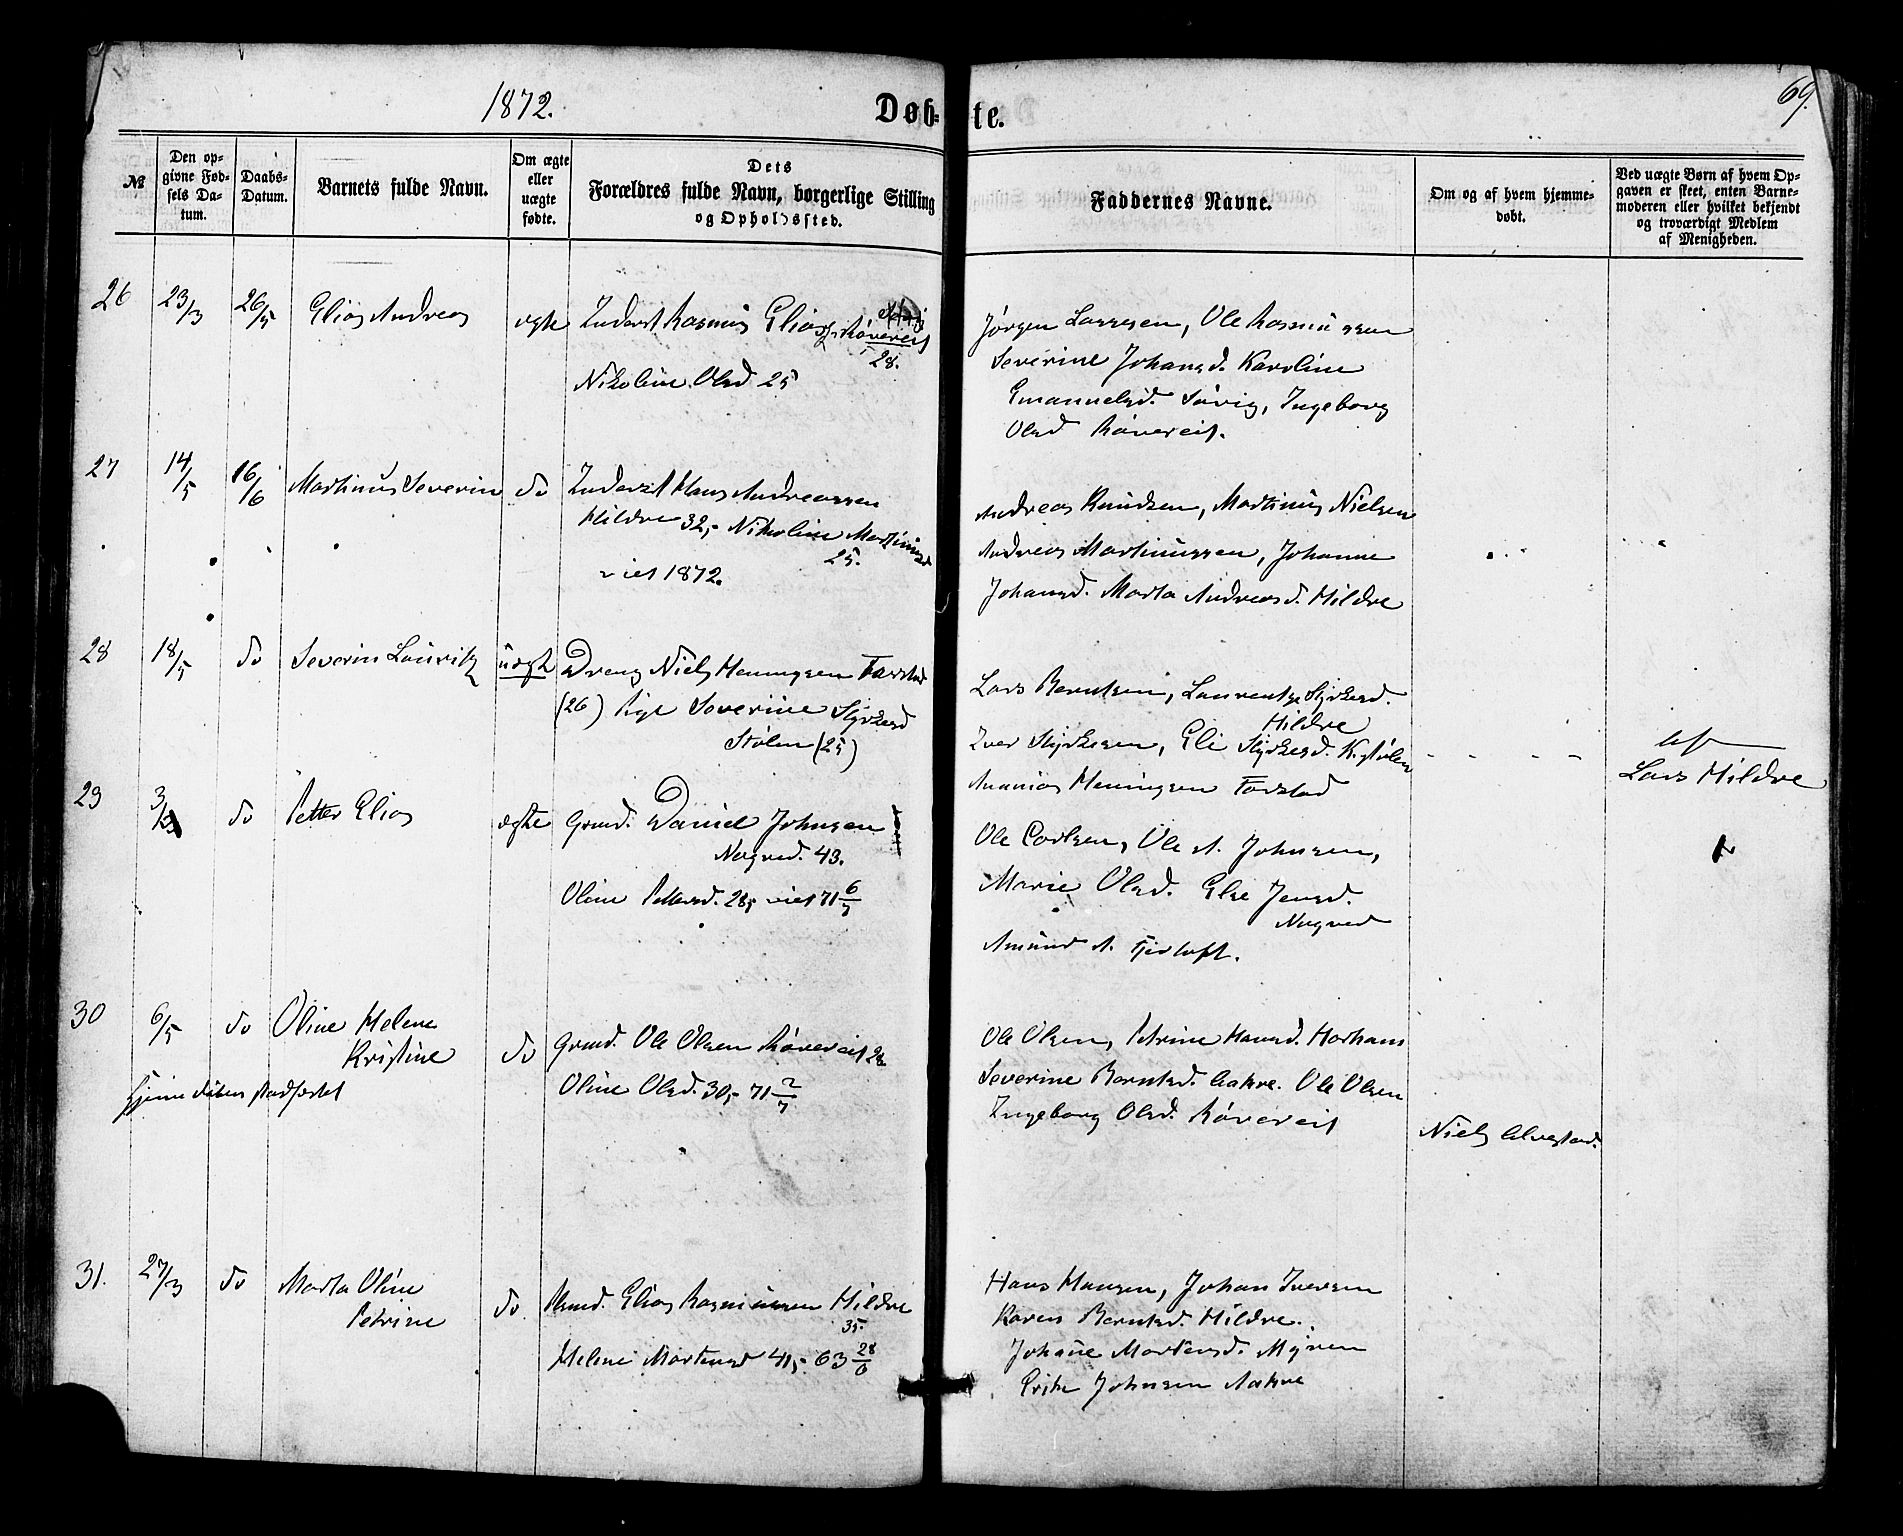 1872.
Døb-te.
69.
№
Den op-
givne Fød-
sels Da-
tum.
Daabs-
Datum.
Barnets fulde Navn.
Om ægte
eller
uægte
fødte.
Dets
Forældres fulde Navn, borgerlige Stilling
og Opholdssted.
Faddernes Navne.
Om og af hvem hjemme-
døbt.
Ved uægte Børn af hvem Op-
gaven er skeet, enten Barne-
moderen eller hvilket bekjendt
og troværdigt Medlem
af Menigheden.
26 23/3 26/5 Elias Andreas ægte Inderst Rasmus Elias Røvereit
28.
Nikoline Olsd 25
Jørgen Larssen, Ole Rasmussen
Severine Johansd. Karoline
Emanuelsd. Søvig, Ingeborg
Olsd Røvereit.
27 14/5 16/6 Martinus Severin do Inderst Hans Andreassen
Hildre 32,- Nikoline Martinusd
25.
viet 1872.
Andreas Knudsen, Martinus Nielsen
Andreas Martinussen, Johanne
Johansd. Marta Andreasd. Hildre
28 18/5 do Severin Lauritz uægte Dreng Niels Henningsen Farstad
(26) Pige Severine Styrkesd
Stølen (25)
Lars Berntsen, Laurentze Styrkesd.
Hildre
Iver Styrkesen, Eli Styrkesd. K.stølen
Ananias Henningsen Farstad
af
Lars Hildre
29 3/ do Petter Elias ægte Grmd. Daniel Johnsen
Nogved. 43.
Oline Pettersd. 28,- viet 71 6/7
Ole Carlsen, Ole A. Johnsen,
Marie Olsd. Else Jensd.
Nogved
Amund A. Fjørtoft.
30 6/5 do Oline Helene
Kristine
do Grmd. Ole Olsen Røvereit 28
Oline Olsd. 30,- 71 2/7
hjemmedåben stadfæstet
Ole Olsen, Petrine Hansd. Harhams
Severine Berntsd. Aakre. Ole Olsen
Ingeborg Olsd. Røvereit
Niels Alvestad.
31. 27/3 do Marta Oline
Petrine
do Elias Rasmussen Hildre
35.
Helene Mortensd 41,- 63 28/6
Hans Hansen, Johan Iversen
Karen Berntsd. Hildre.
Johanne Mortensd. Myren
Johnsen Aakre